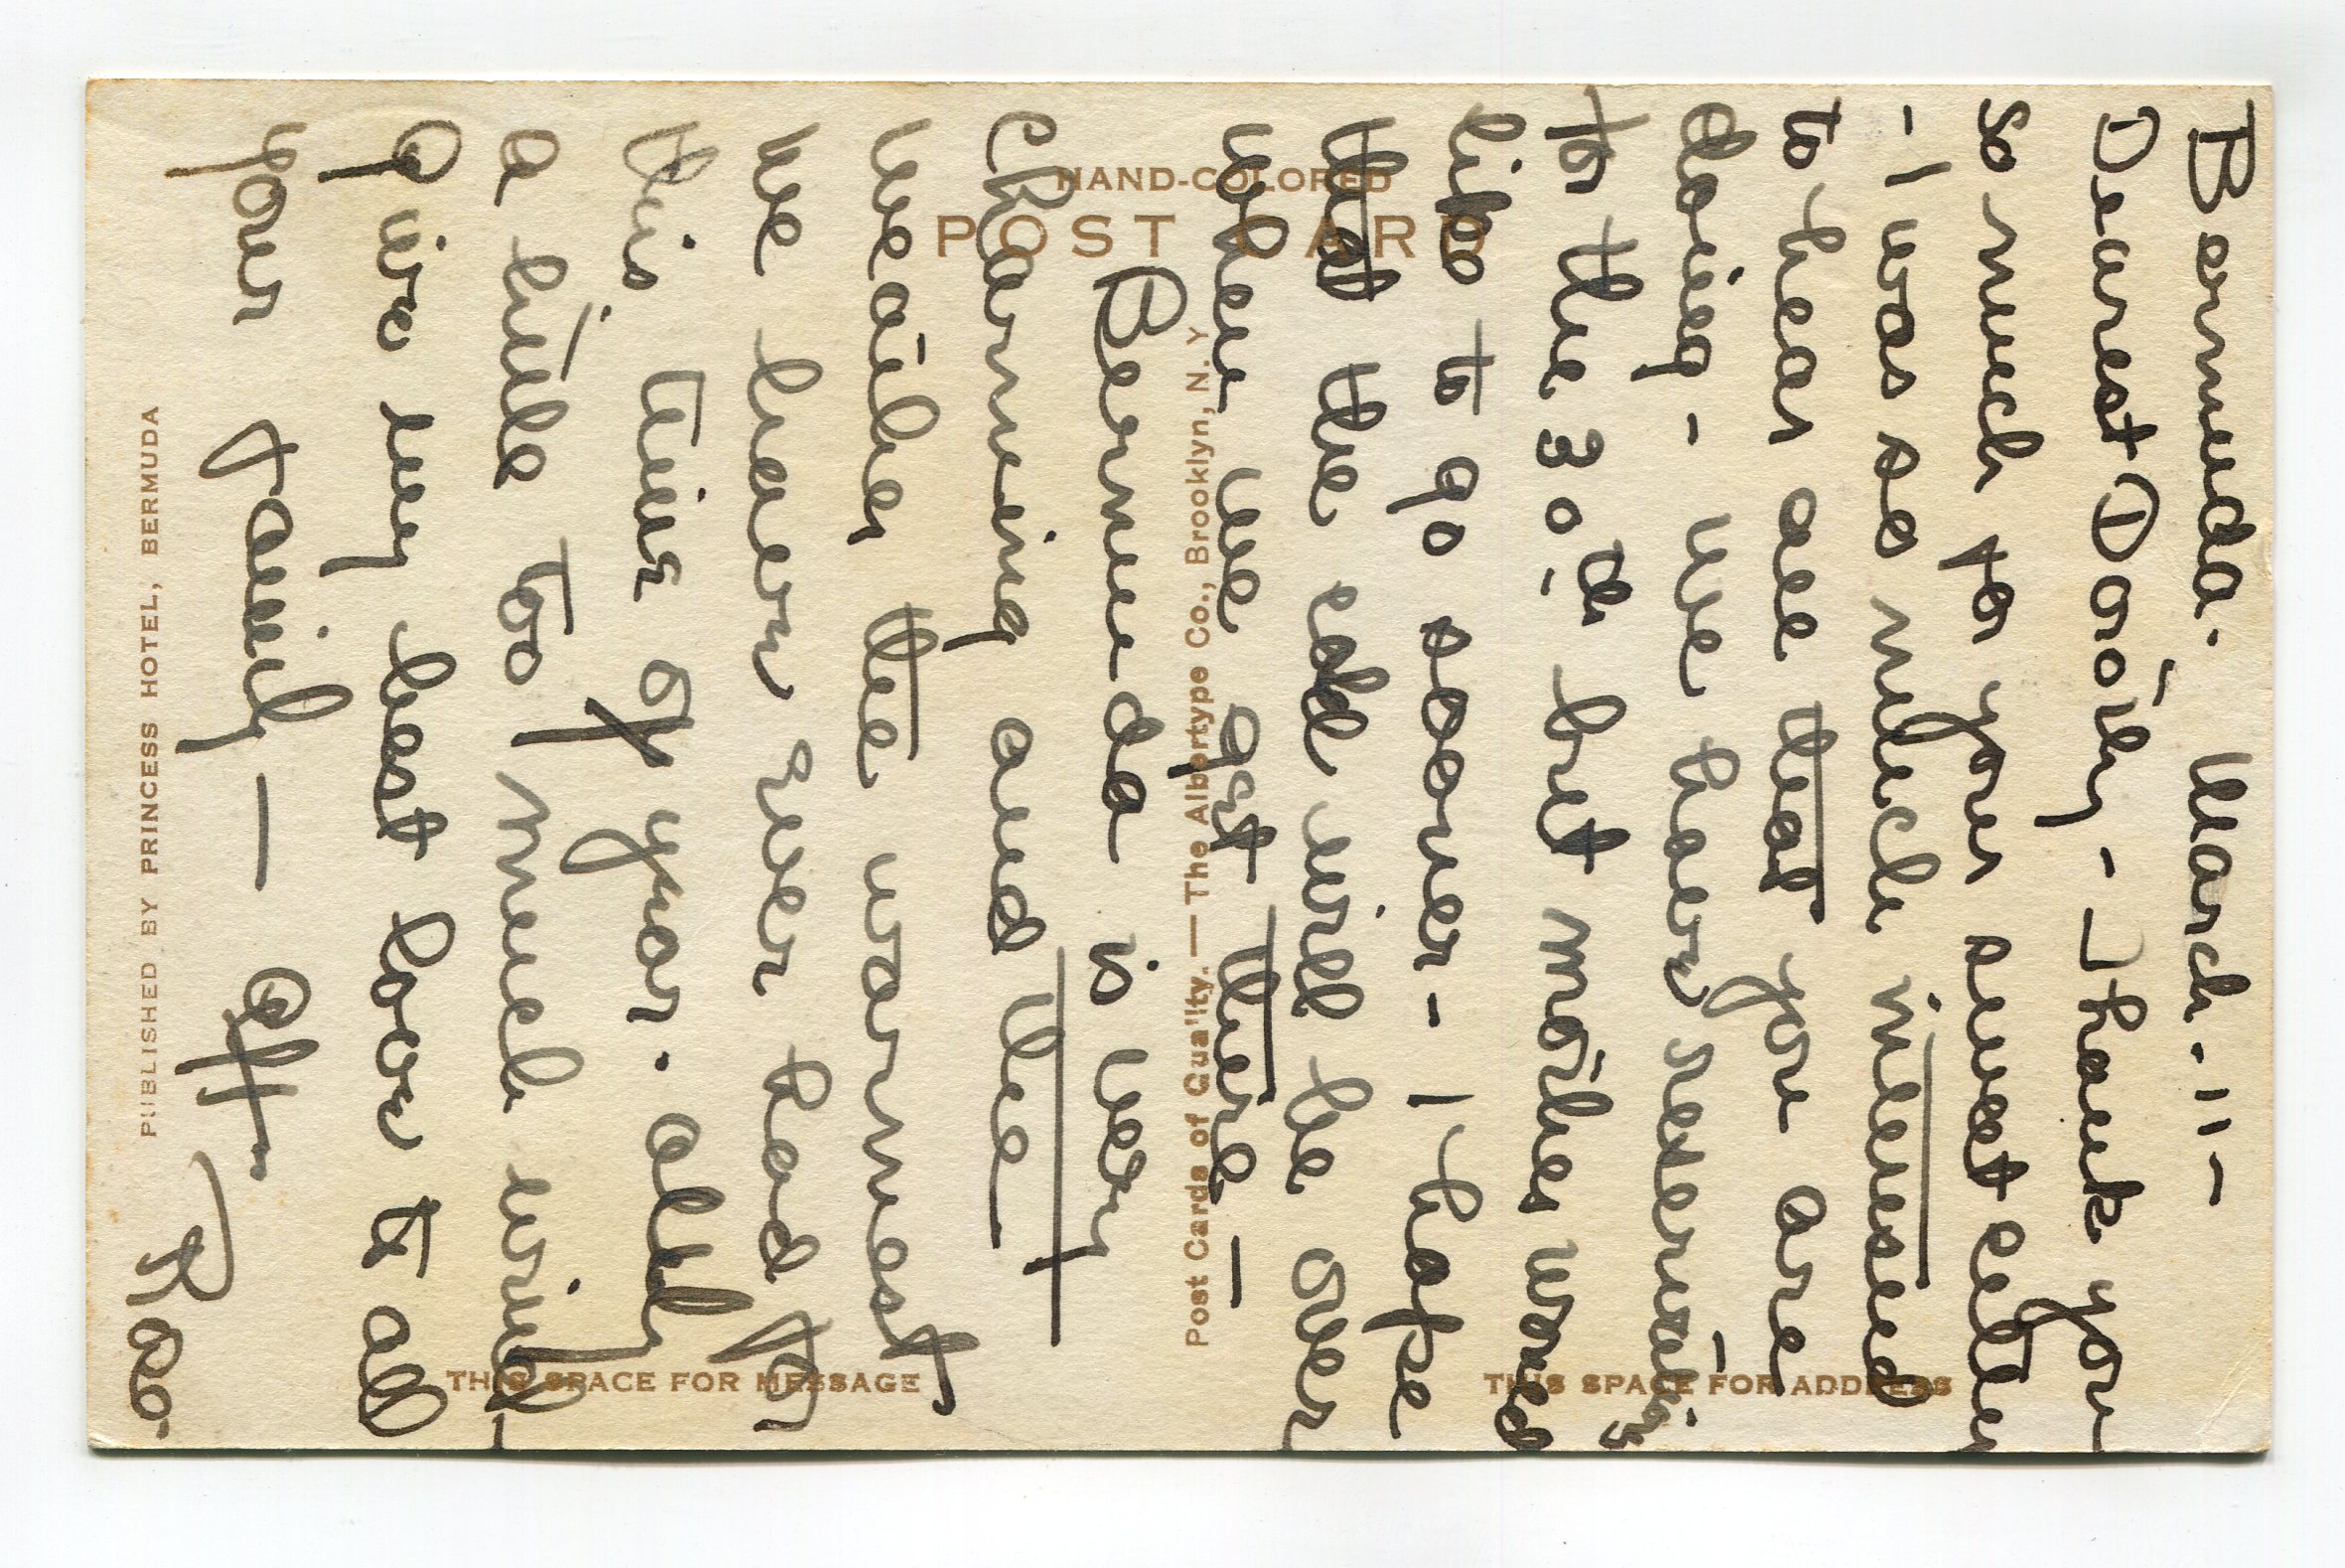 Bermuda. March. 11 -
Dearest Dorothy - Thank you
so much for your sweet letter
- I was so much interested
to hear all that you are
doing - We have reservations
for the 30th. but mother would
like to go sooner - I hope
that the cold will be over
when we get there —
Bermuda is very
charming and the
weather the warmest
we have ever had for
this time of year. Only
a little too much wind -
Give my best love to all
your family — Aff.
HAND-COLORED
POST CARD
Post Cards of Quality. — The Albertype Co., Brooklyn, N. Y.
THIS SPACE FOR MESSAGE
THIS SPACE FOR ADDRESS
PUBLISHED BY PRINCESS HOTEL, BERMUDA